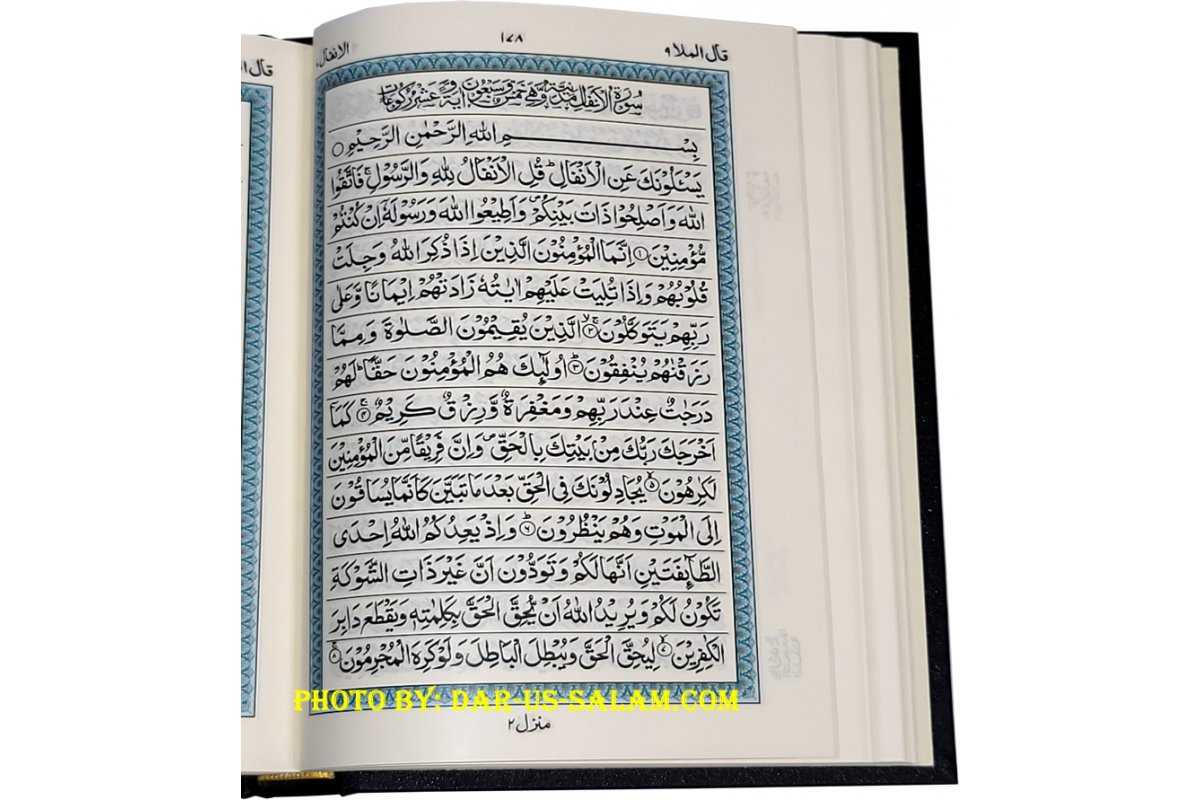 قال الملا ٩
١٧٨
الانفال
قال ا
سُوْرَةُ الْاَنْفَالِ مَدَنِيَّةٌ وَّهِيَ خَمْسٌ وَّسَبْعُوْنَ اٰيَةً وَّعَشْرُ رُكُوْعَاتٍ
بِسْمِ اللّٰهِ الرَّحْمٰنِ الرَّحِيْمِ
يَسْـَٔلُوْنَكَ عَنِ الْاَنْفَالِ ؕ قُلِ الْاَنْفَالُ لِلّٰهِ وَالرَّسُوْلِ ۚ فَاتَّقُوا
اللّٰهَ وَاَصْلِحُوْا ذَاتَ بَيْنِكُمْ ۪ وَاَطِيْعُوا اللّٰهَ وَرَسُوْلَهٗۤ اِنْ كُنْتُمْ
مُّؤْمِنِيْنَ ۝۱ اِنَّمَا الْمُؤْمِنُوْنَ الَّذِيْنَ اِذَا ذُكِرَ اللّٰهُ وَجِلَتْ
قُلُوْبُهُمْ وَاِذَا تُلِيَتْ عَلَيْهِمْ اٰيٰتُهٗ زَادَتْهُمْ اِيْمَانًا وَّعَلٰى
رَبِّهِمْ يَتَوَكَّلُوْنَ ۝۲ۙ الَّذِيْنَ يُقِيْمُوْنَ الصَّلٰوةَ وَمِمَّا
رَزَقْنٰهُمْ يُنْفِقُوْنَ ۝۳ؕ اُولٰٓئِكَ هُمُ الْمُؤْمِنُوْنَ حَقًّا ؕ لَهُمْ
دَرَجٰتٌ عِنْدَ رَبِّهِمْ وَمَغْفِرَةٌ وَّرِزْقٌ كَرِيْمٌ ۝۴ۚ كَمَاۤ
اَخْرَجَكَ رَبُّكَ مِنْۢ بَيْتِكَ بِالْحَقِّ ۪ وَاِنَّ فَرِيْقًا مِّنَ الْمُؤْمِنِيْنَ
لَكٰرِهُوْنَ ۝۵ۙ يُجَادِلُوْنَكَ فِى الْحَقِّ بَعْدَ مَا تَبَيَّنَ كَاَنَّمَا يُسَاقُوْنَ
اِلَى الْمَوْتِ وَهُمْ يَنْظُرُوْنَ ۝۶ؕ وَاِذْ يَعِدُكُمُ اللّٰهُ اِحْدَى
الطَّآئِفَتَيْنِ اَنَّهَا لَكُمْ وَتَوَدُّوْنَ اَنَّ غَيْرَ ذَاتِ الشَّوْكَةِ
تَكُوْنُ لَكُمْ وَيُرِيْدُ اللّٰهُ اَنْ يُّحِقَّ الْحَقَّ بِكَلِمٰتِهٖ وَيَقْطَعَ دَابِرَ
الْكٰفِرِيْنَ ۝۷ۙ لِيُحِقَّ الْحَقَّ وَيُبْطِلَ الْبَاطِلَ وَلَوْ كَرِهَ الْمُجْرِمُوْنَ ۝۸ۚ
PHOTO BY: DAR-US-SALAM.COM
منزل ٢